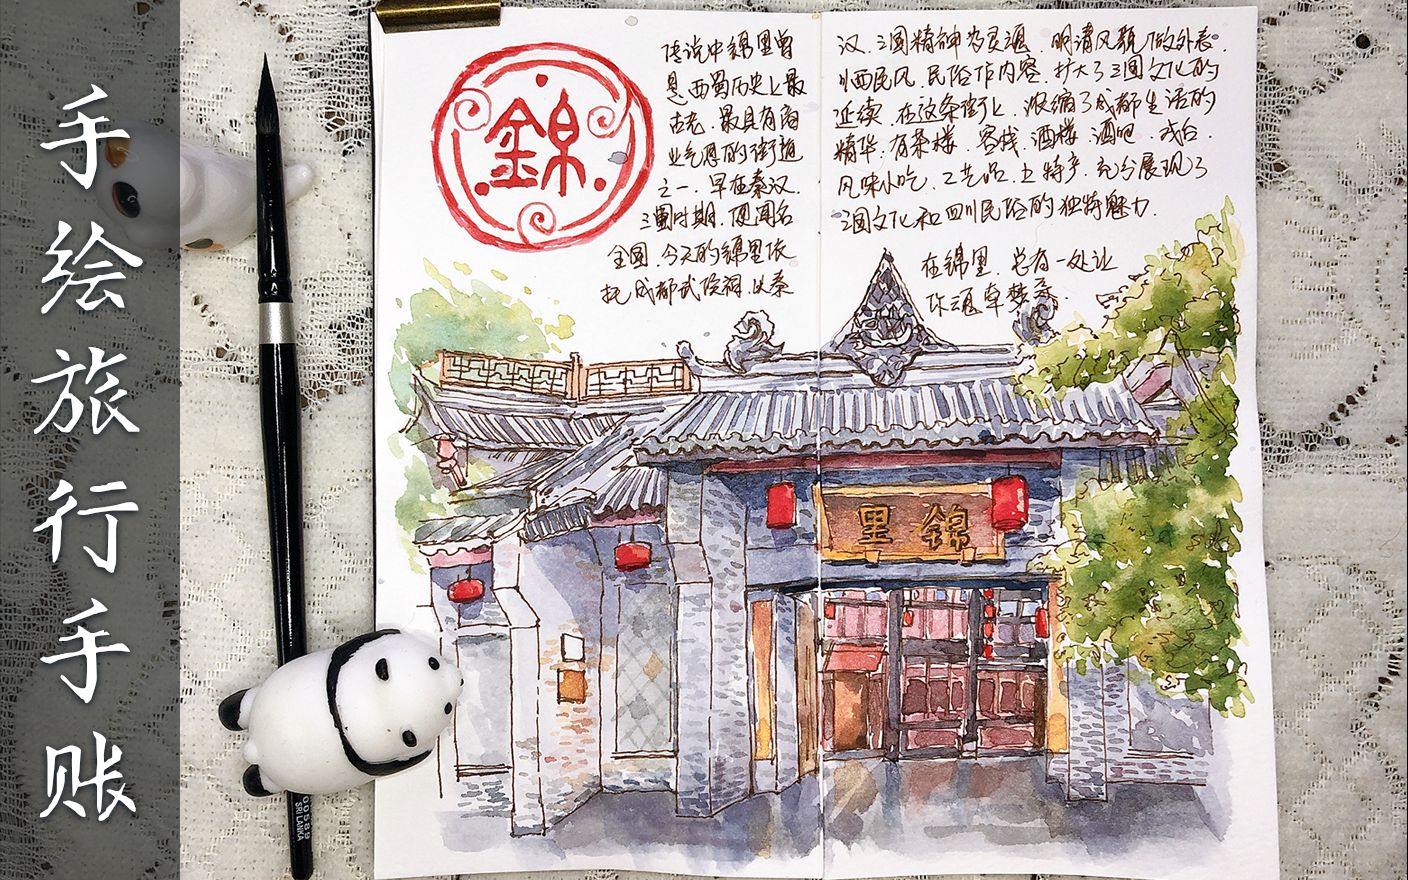 手绘旅行手账
錦
传说中锦里曾
是西蜀历史上最
古老、最具有商
业气息的街道
之一，早在秦汉、
三国时期，便闻名
全国。今天的锦里依
托成都武侯祠，以秦
汉、三国精神为灵魂，明清风貌做外表，
川西民风、民俗作内容，扩大了三国文化的
延续。在这条街上，浓缩了成都生活的
精华：有茶楼、客栈、酒楼、酒吧、戏台、
风味小吃、工艺品、土特产，充分展现了
三国文化和四川民俗的独特魅力。
在锦里，总有一处让
你魂牵梦系。
里錦
00589
SRI LANKA